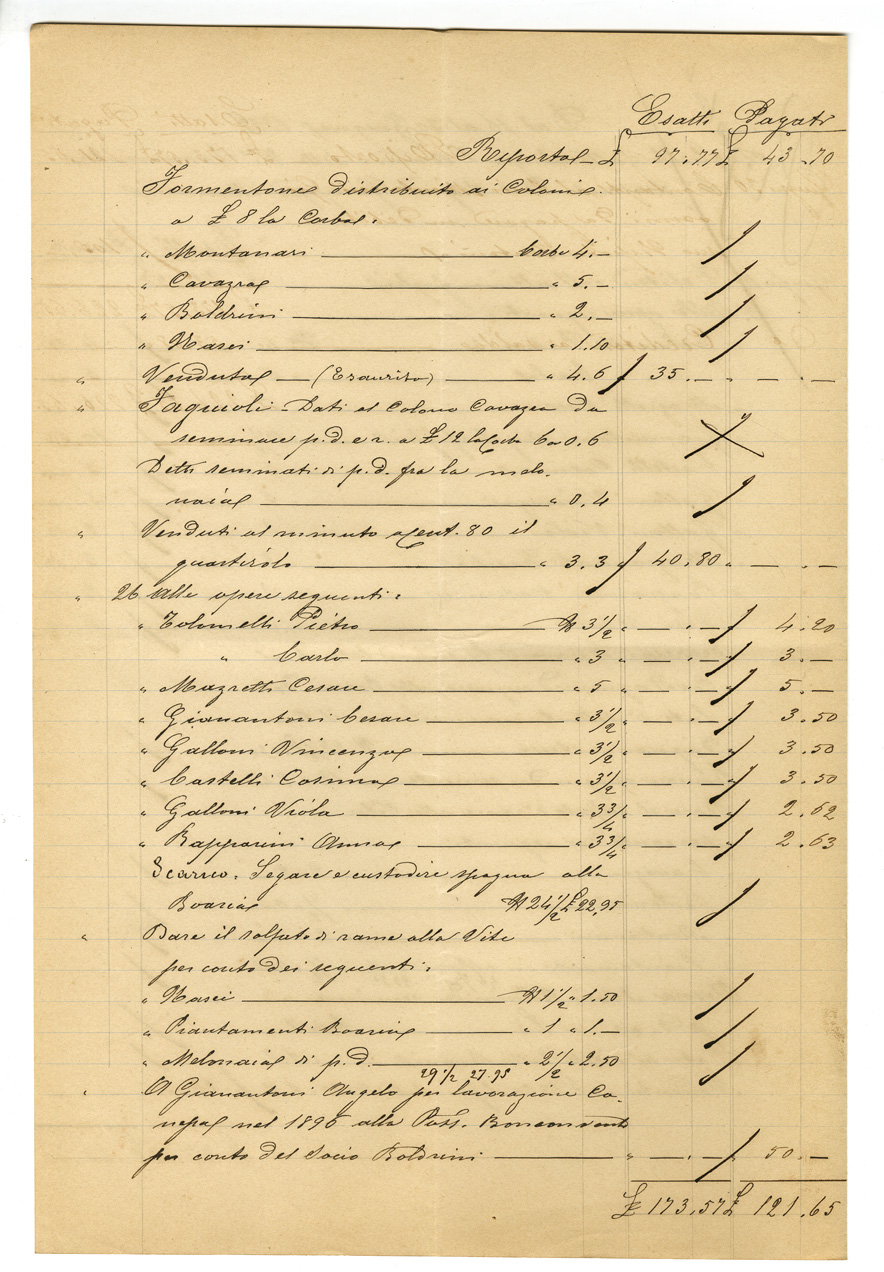 Esatti Pagati
Riporto £ 97.77 £ 43.70
Formentone distribuito ai Coloni
a £ 8 la Corba:
" Montanari Corbe 4.—
" Cavazza " 5.—
" Boldrini " 2.—
" Nasci " 1.10
" Venduto (Esaurito) " 4.6 " 35.— " — . —
" Fagiuoli - Dati al Colono Cavazza da
seminare p.d. e r. a £ 12 la Corba Co 0.6
Detti seminati di p.d. fra la melo-
naia " 0.4
" Venduti al minuto a Cent. 80 il
quartirolo " 3.3 " 40.80 " — . —
" 26 Alle opere seguenti:
" Tolomelli Pietro N 3 1/2 " — . — " 4.20
" Carlo " 3 " — . — " 3.—
" Mazzetti Cesare " 5 " — . — " 5.—
" Gianantoni Cesare " 3 1/2 " — . — " 3.50
" Galloni Vincenzo " 3 1/2 " — . — " 3.50
" Castelli Cosima " 3 1/2 " — . — " 3.50
" Galloni Viola " 3 3/4 " — . — " 2.62
" Rapparini Anna " 3 3/4 " — . — " 2.63
Scarico: Segare e custodire spagna alla
Boaria N 24 1/2 £ 22,95
" Dare il solfato di rame alla Vite
per conto dei seguenti:
" Nasci N 1 1/2 " 1.50
" Piantamenti Boaria " 1 " 1.—
" Melonaia di p.d. " 2 1/2 " 2.50
29 1/2 27.95
" A Gianantoni Angelo per lavorazione Ca-
nepa nel 1896 alla Poss. Bonconvento
per conto del Socio Boldrini " — . — " 50.—
£ 173.57 £ 121.65